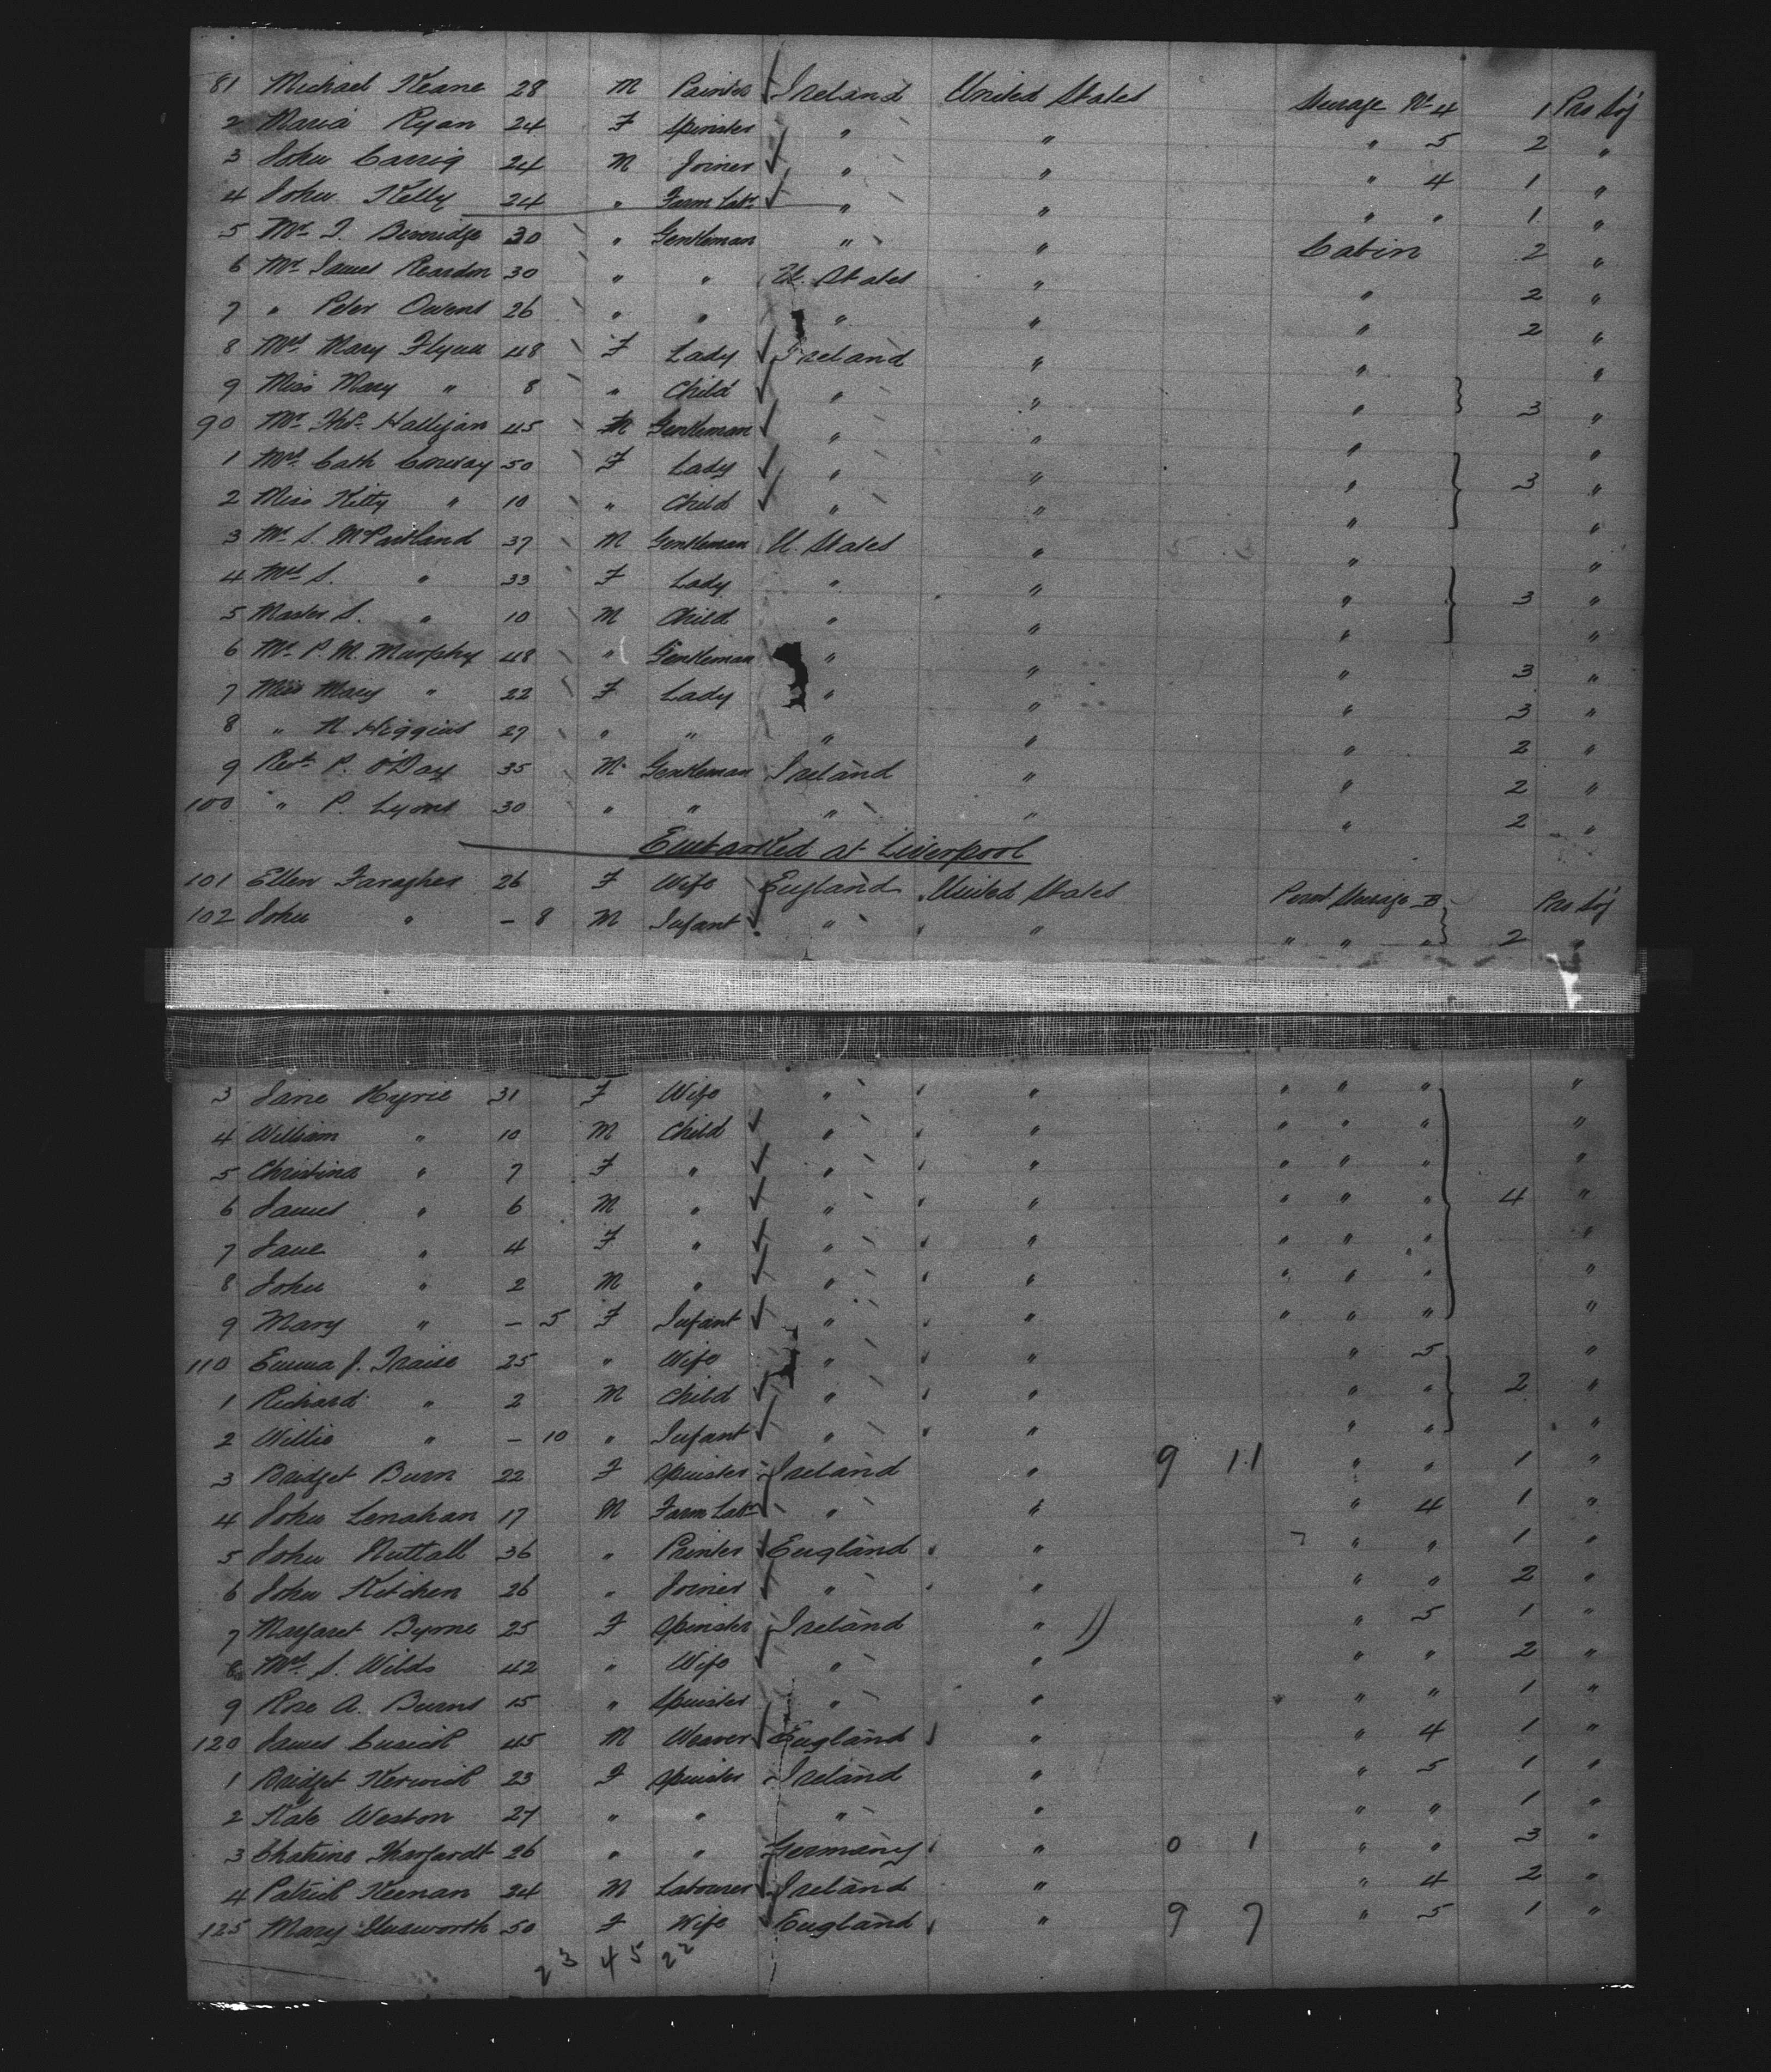 81 Michael Keane 28 M Painter Ireland United States Steerage No 4 1 Pro Soj
2 Maria Ryan 24 F Spinster " " " 5 2 "
3 John Carrig 24 M Joiner " " " 4 1 "
4 John Kelly 24 " Farm Labr " " " " 1 "
5 Mr J. Beveridge 30 " Gentleman " " Cabin 2 "
6 Mr James Reardon 30 " " U. States " " 2 "
7 " Peter Owens 26 " " " " " 2 "
8 Mrs Mary Flynn 48 F Lady Ireland " " "
9 Miss Mary " 8 " Child " " " 3 "
90 Mr Thos Halligan 45 M Gentleman " " " "
1 Mrs Cath Conway 50 F Lady " " " 3 "
2 Miss Kitty " 10 " Child " " " "
3 Mr S. McPartland 37 M Gentleman U. States " " "
4 Mrs S. " 33 F Lady " " " 3 "
5 Master S. " 10 M Child " " " "
6 Mr P. M. Murphy 48 " Gentleman " " " 3 "
7 Miss Mary " 22 F Lady " " " 3 "
8 " N. Higgins 27 " " " " " 2 "
9 Revd P. O'Day 35 M Gentleman Ireland " " 2 "
100 " P. Lyons 30 " " " " " 2 "
Embarked at Liverpool
101 Ellen Faragher 26 F Wife England United States Steerage B Pro Soj
102 John " - 8 M Infant " " " " " 2 "
3 Jane Hyrie 31 F Wife " " " " " "
4 William " 10 M Child " " " " " "
5 Christina " 7 F " " " " " " "
6 James " 6 M " " " " " " 4 "
7 Jane " 4 F " " " " " " "
8 John " 2 M " " " " " " "
9 Mary " - 5 F Infant " " " " " "
110 Emma J. Traise 25 " Wife " " " 5 "
1 Richard " 2 M Child " " " " 2 "
2 Willie " - 10 " Infant " " " " "
3 Bridget Burn 22 F Spinster Ireland " 9 11 " " 1 "
4 John Lenahan 17 M Farm Labr " " " 4 1 "
5 John Nuttall 36 " Printer England " " " 1 "
6 John Kitchen 26 " Joiner " " " " 2 "
7 Margaret Byrne 25 F Spinster Ireland " " 5 1 "
8 Mrs S. Wilds 42 " Wife " " " " 2 "
9 Rose A. Burns 15 " Spinster " " " " 1 "
120 James Cusick 45 M Weaver England " " 4 1 "
1 Bridget Kerwick 23 F Spinster Ireland " " 5 1 "
2 Kate Weston 27 " " " " " " 1 "
3 26 " " Germany " 0 1 " " 3 "
4 Patrick Keenan 24 M Labourer Ireland " " 4 2 "
125 Mary 50 F Wife England " 9 7 " 5 1 "
23 45 22